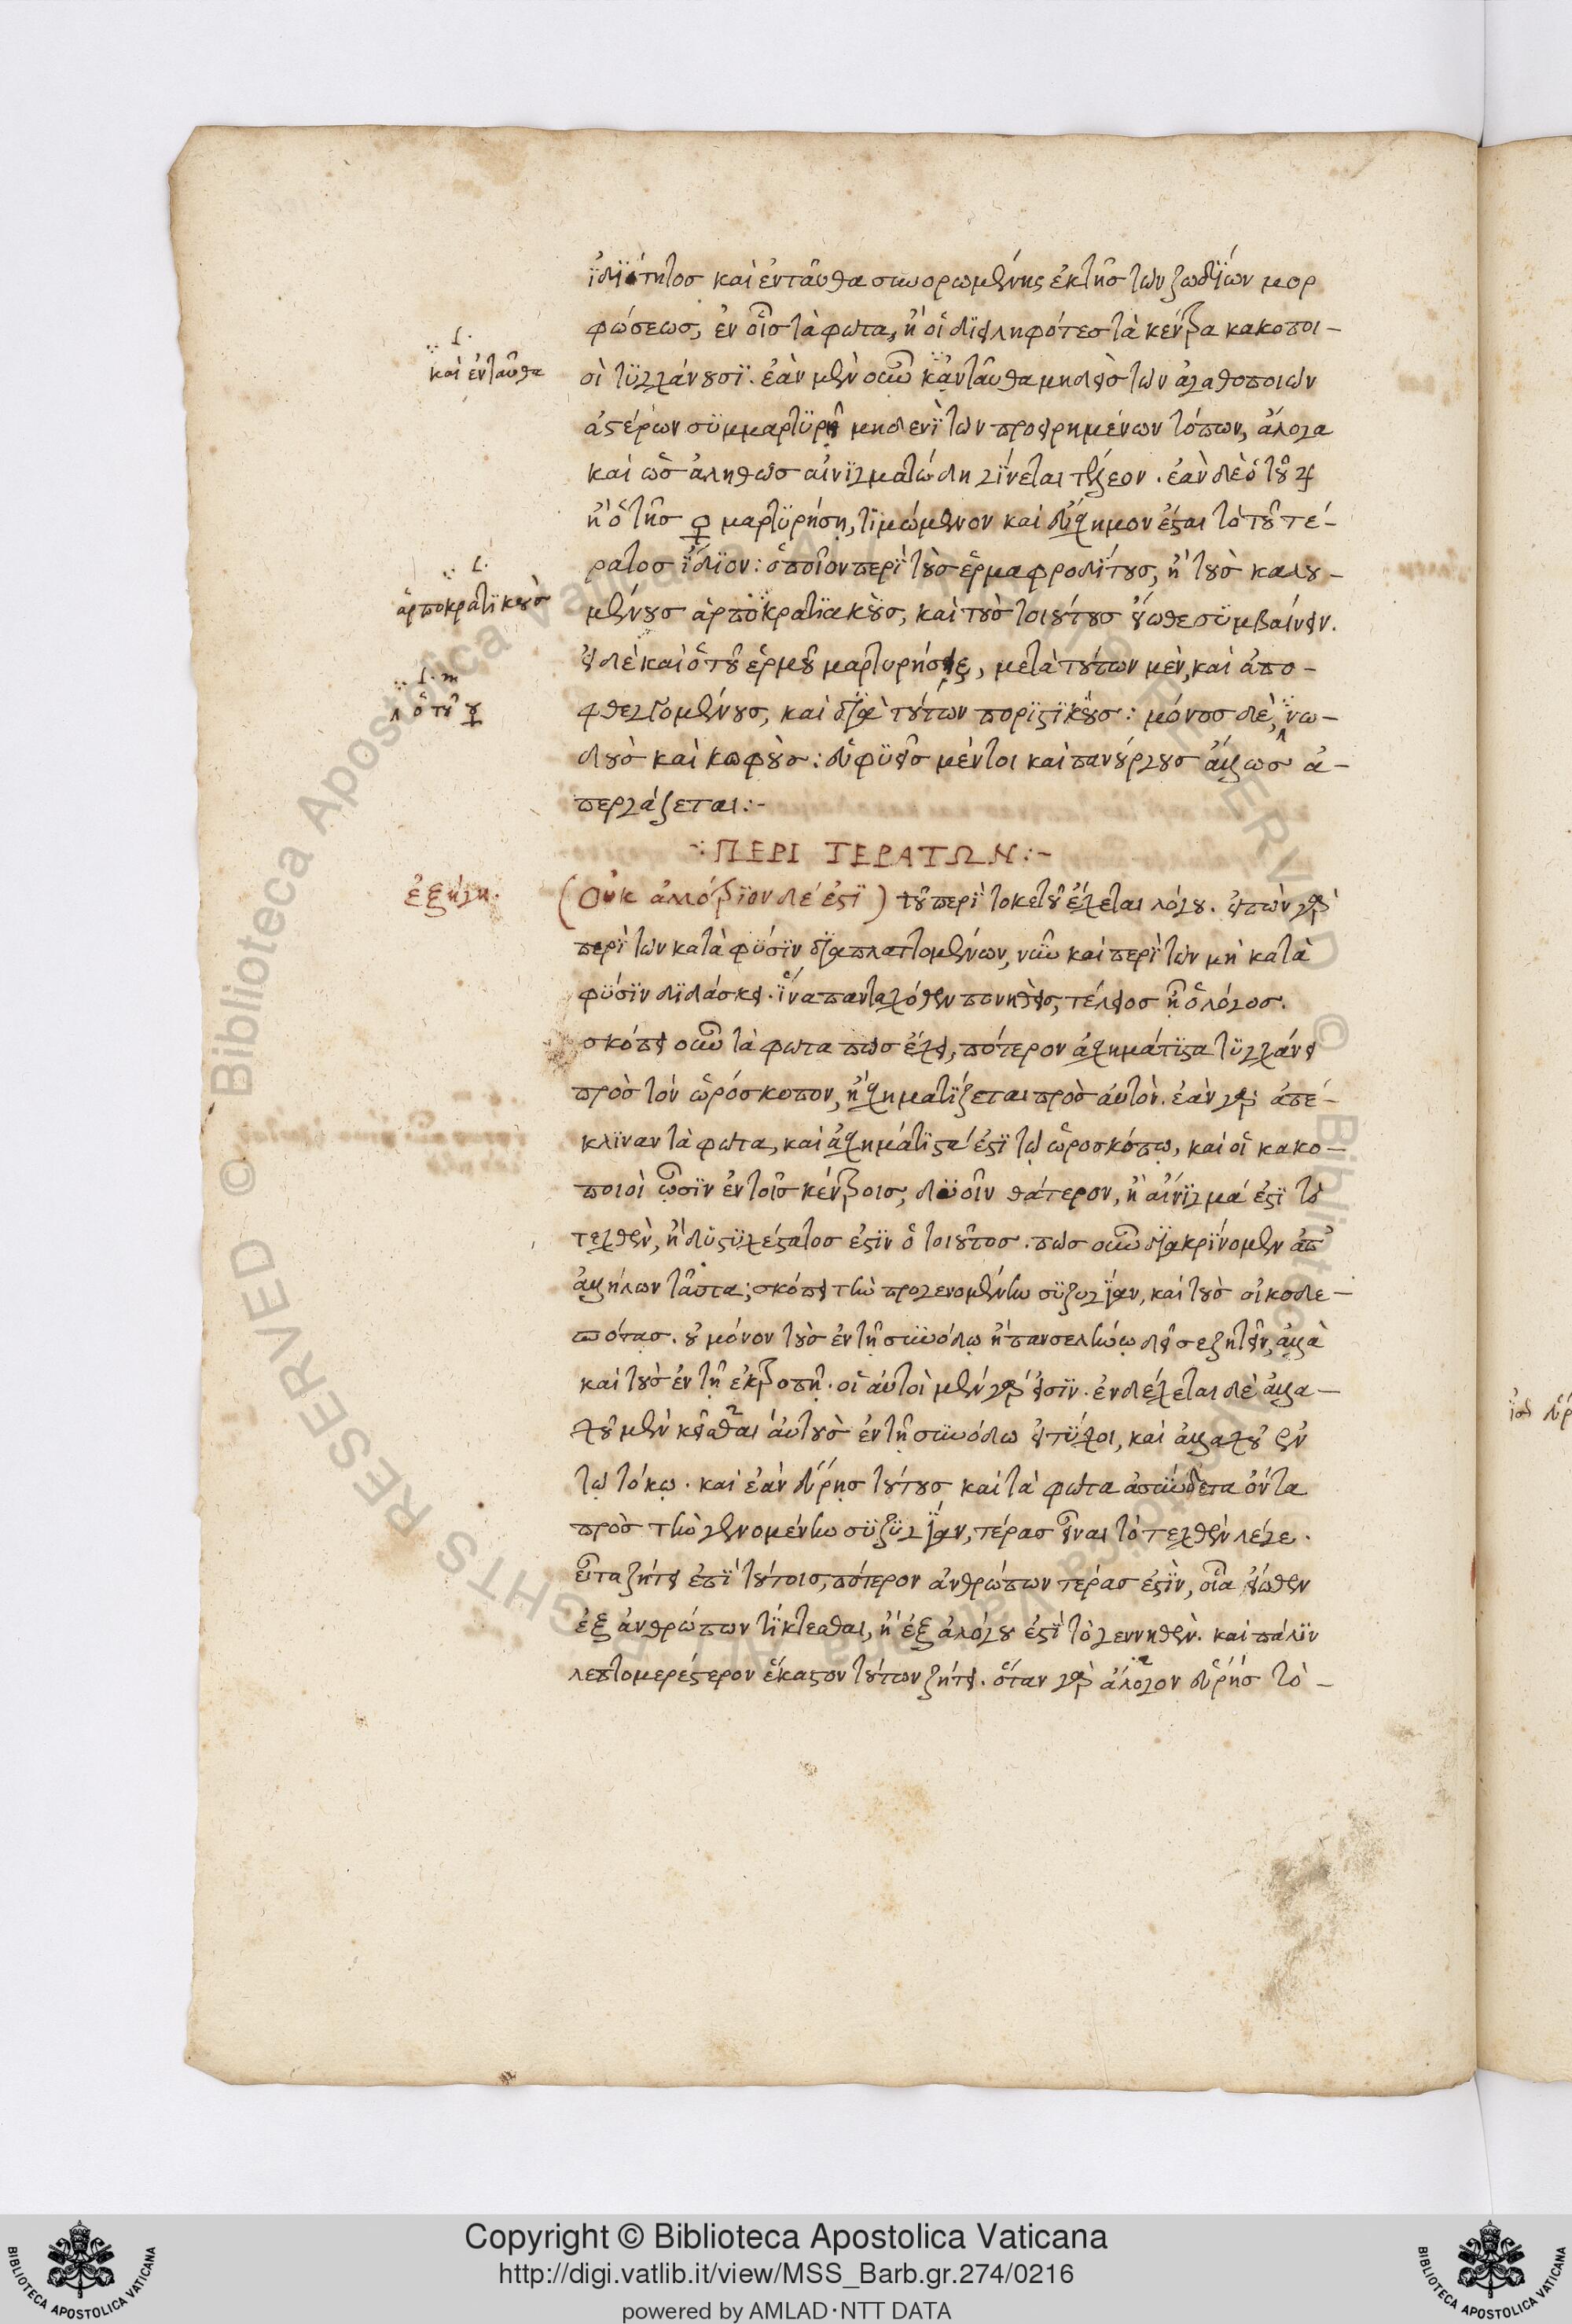 ἰδιότητος καὶ ἐνταῦθα συνορωμένης ἐκ τῆς τῶν ζωδίων μορ
φώσεως, ἐν οἷς τὰ φῶτα, ἢ οἱ διειληφότες τὰ κέντρα κακοποι-
οὶ τυγχάνουσι. ἐὰν μὲν οὖν κἀνταῦθα μηδεὶς τῶν ἀγαθοποιῶν
καὶ ἐνταῦθα
ἀστέρων συμμαρτυρῇ μηδενὶ τῶν προειρημένων τόπων, ἄλογα
καὶ ὡς ἀληθῶς αἰνιγματώδη γίνεται τέλεον. ἐὰν δὲ ὁ τοῦ ♃
ἢ ὁ τῆς ♀ μαρτυρήσῃ, τιμώμενον καὶ εὔσχημον ἔσται τὸ τοῦ τέ-
ρατος ἴδιον: ὁποῖον περὶ τοὺς ἑρμαφροδίτους, ἢ τοὺς καλου-
μένους ἁρποκρατιακοὺς, καὶ τοὺς τοιούτους εἴωθε συμβαίνειν.
ἁρποκρατικοὺς
εἰ δὲ καὶ ὁ τοῦ ἑρμοῦ μαρτυρήσειε, μετὰ τούτων μὲν, καὶ ἀπο-
φθεγγομένους, καὶ διὰ τούτων ποριστικοὺς: μόνος δὲ, νω-
ὁ τοῦ ☿
δοὺς καὶ κωφοὺς: εὐφυεῖς μέντοι καὶ πανούργους ἄλλως ἀ-
περγάζεται:-
ΠΕΡΙ ΤΕΡΑΤΩΝ:-
ἐξήγη.
(Οὐκ ἀλλότριον δέ ἐστι) τοῦ περὶ τοκετοῦ ἔχεται λόγου. εἰπὼν γὰρ
περὶ τῶν κατὰ φύσιν διαπλαττομένων, νῦν καὶ περὶ τῶν μὴ κατὰ
φύσιν διδάσκει. ἵνα πανταχόθεν πονηθεὶς, τέλειος ᾖ ὁ λόγος.
σκόπει οὖν τὰ φῶτα πῶς ἔχει, πότερον ἀσχημάτιστα τυγχάνει
πρὸς τὸν ὡρόσκοπον, ἢ σχηματίζεται πρὸς αὐτόν. ἐὰν γὰρ ἀπέ-
κλιναν τὰ φῶτα, καὶ ἀσχημάτιστά ἐστι τῷ ὡροσκόπῳ, καὶ οἱ κακο-
ποιοὶ ὦσιν ἐν τοῖς κέντροις, δυοῖν θάτερον, ἢ αἴνιγμά ἐστι τὸ
τεχθὲν, ἢ δυστυχέστατος ἐστὶν ὁ τοιοῦτος. πῶς οὖν διακρίνομεν ἀπ'
ἀλλήλων ταῦτα; σκόπει τὴν προγενομένην συζυγίαν, καὶ τοὺς οἰκοδε-
σπότας. οὐ μόνον τοὺς ἐν τῇ συνόδῳ ἢ πανσελήνῳ δεῖ σε ζητεῖν, ἀλλὰ
καὶ τοὺς ἐν τῇ ἐκτροπῇ. οἱ αὐτοὶ μὲν γάρ εἰσιν. ἐνδέχεται δὲ ἀλλα-
χοῦ μὲν κεῖσθαι αὐτοὺς ἐν τῇ συνόδῳ εἰ τύχοι, καὶ ἀλλαχοῦ ἐν
τῷ τόκῳ. καὶ ἐὰν εὕρῃς τούτους καὶ τὰ φῶτα ἀσύνδετα ὄντα
πρὸς τὴν γενομένην συζυγίαν, τέρας εἶναι τὸ τεχθὲν λέγε.
εἶτα ζήτει ἐπὶ τούτοις, πότερον ἀνθρώπων τέρας ἐστὶν, οἷα εἴωθεν
ἐξ ἀνθρώπων τίκτεσθαι, ἢ ἐξ ἀλόγου ἐστὶ τὸ γεννηθέν. καὶ πάλιν
λεπτομερέστερον ἕκαστον τούτων ζήτει. ὅταν γὰρ ἄλογον εὕρῃς τὸ-
© Biblioteca Apostolica Vaticana ALL RIGHTS RESERVED
Copyright © Biblioteca Apostolica Vaticana
http://digi.vatlib.it/view/MSS_Barb.gr.274/0216
powered by AMLAD·NTT DATA
BIBLIOTECA APOSTOLICA VATICANA
BIBLIOTECA APOSTOLICA VATICANA